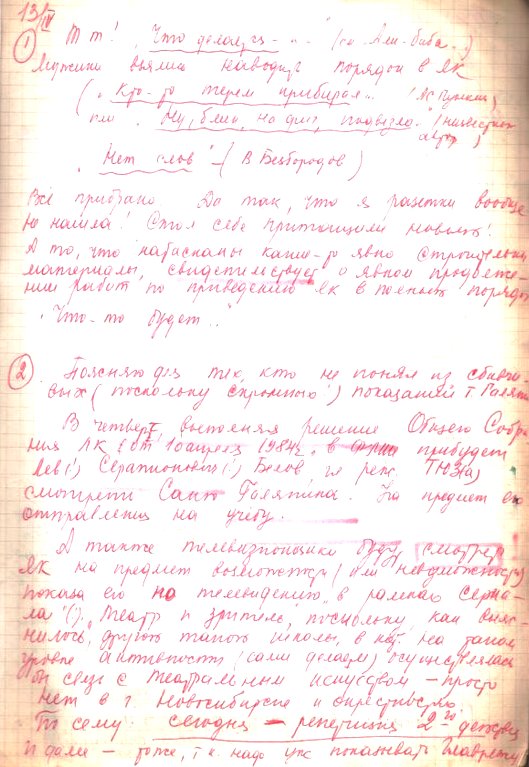 13/IV
① Т т! "Что делается - .." (по Али-баба..)
Мужики взялись наводить порядок в ЯК
("Кто-то терем прибирал.." (АС Пушкин)
или "Ну, бля, на фиг, подвезло." (неизвестный автор)
"Нет слов" - (В Безбородов)
Всё прибрано. Да так, что я розетки вообще
не нашла! Стол себе притащили новый!
А то, что натасканы какие-то явно строительные
материалы, свидетельствует о явном продолже-
нии работ по приведению ЯК в полный порядок
"Что-то будет.."
② Поясняю для тех, кто не понял из сбивчи-
вых (поскольку скромного!) показаний т. Голят
В четверг, выполняя решение Общего Собра-
ния ЯК от 10 апреля 1984г., в прибудет
Лев(!) Серапионович(!) Белов гл реж. ТЮЗа)
смотреть Саню Голятина. На предмет его
отправления на учёбу.
А также телевизионщики будут смотреть
ЯК на предмет возможности (или невозможности)
показа его по телевидению, в рамках сериа-
ла "(!) "Театр и зритель", поскольку, как выяс-
нилось, другой такой школы, в кот. на таком
уровне активности (сами делаем) осуществлялась
бы связь с театральным искусством - просто
нет в г. Новосибирске и окрестностях.
По сему сегодня - репетиция 2го действия
и далее - тоже, т.к. надо уже показывать Главрежу